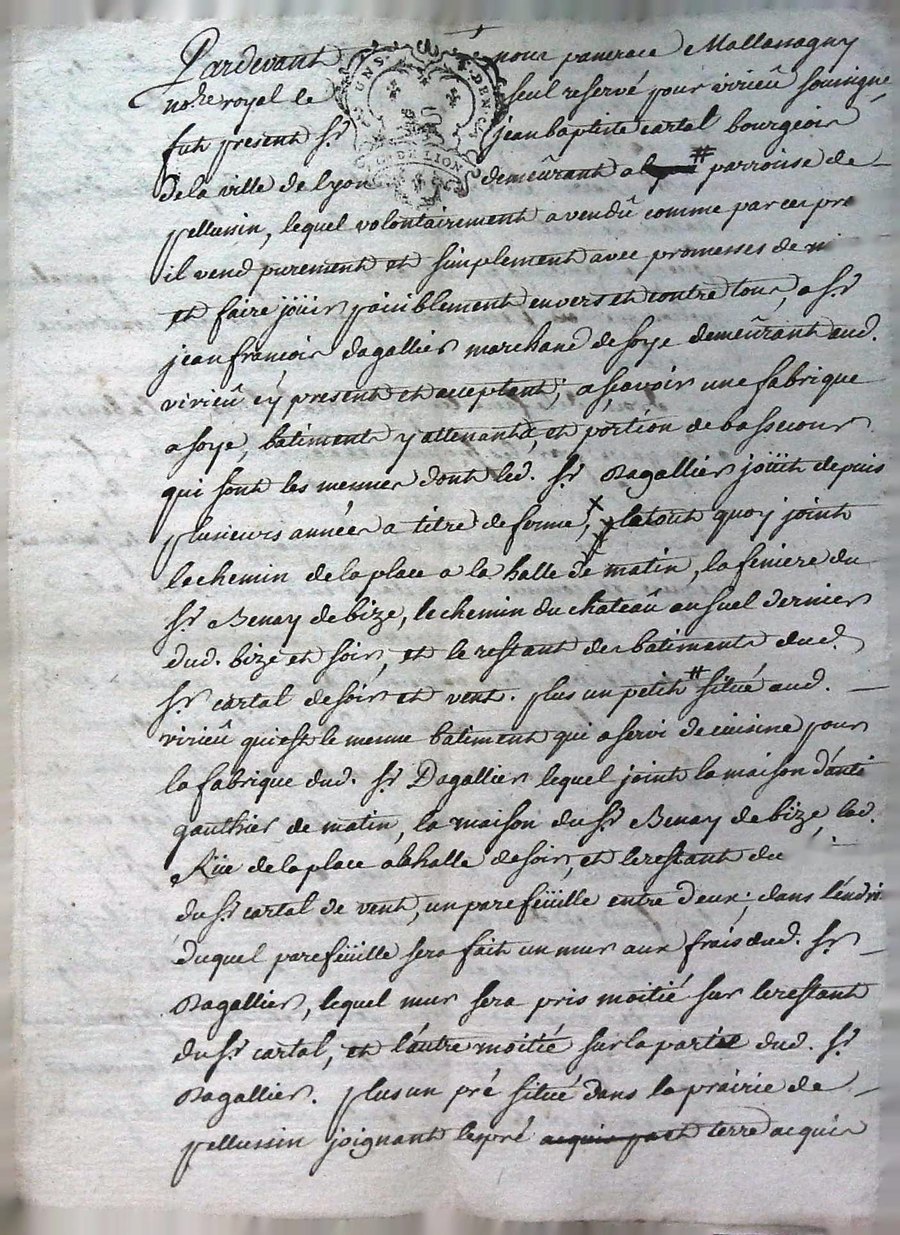 Pardevant nous pancrace Mallassagny
no.re royal le seul reservé pour virieû soussigné
fut present Sr. jean baptiste cartal bourgeois
de la ville de Lyon demeûrant a # parroisse de
pellussin, lequel volontairement a vendû comme par ces pré
il vend purement et simplement avec promesses de
et faire joüir paisiblement envers et contre tous, a Sr.
jean francois dagallier marchand de soye demeûrant aud.
virieû cy present et acceptant; a sçavoir une fabrique
a soye, batiments y attenants, et portion de basse cour
qui sont les mesmes dont led. Sr. Dagallier joüit depuis
plusieurs années a titre de ferme, le tout quoy joint
le chemin de la place a la halle de matin, la feniere du
Sr. Benay de bize, le chemin du chateâu ausuel dernier
dud. bize et soir, et le restant des batiments dud.
Sr. cartal de soir et vent. plus un petit # sitüé aud.
virieû qui est le mesme batiment qui a servi de cuisine pour
la fabrique dud. Sr. Dagallier lequel joint la maison d'anti
gauthier de matin, la maison du Sr. Benay de bize, lad.
Rüe de la place a la halle de soir, et le restant du
du Sr. cartal de vent, un parefeüille entre deux; dans l'endr
duquel parefeüille sera fait un mur aux frais dud. Sr.
Dagallier, lequel mur sera pris moitié sur le restant
du Sr. cartal, et l'autre moitié sur la partie dud. Sr.
Dagallier. plus un pré sitüé dans la prairie de
pellussin joignant le pré terre acquis